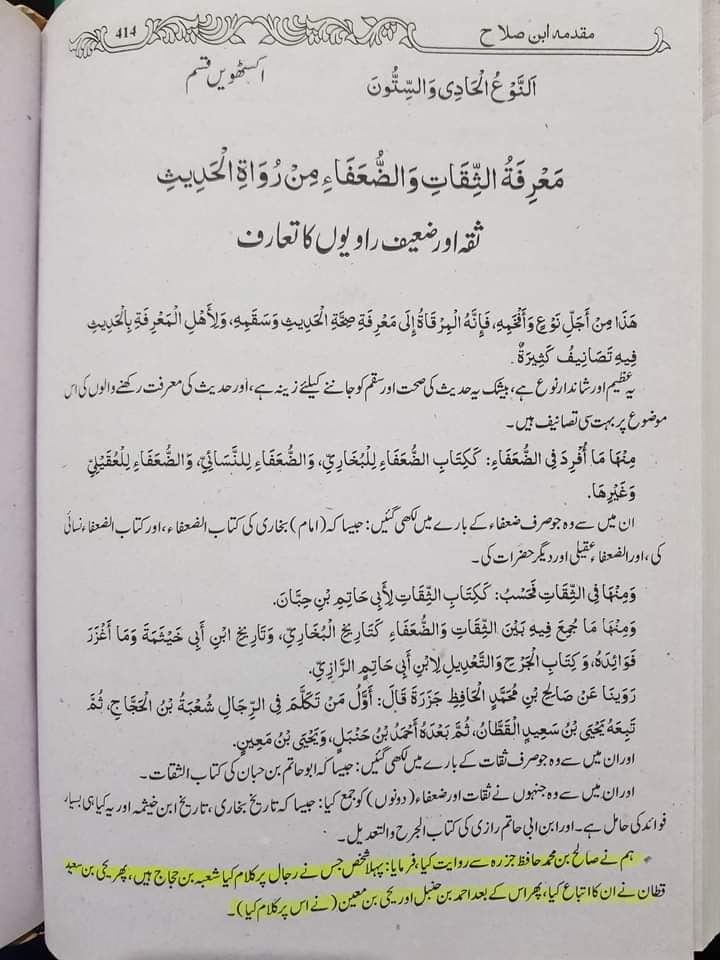 414 مقدمہ ابن صلاح
اَلنَّوْعُ الْحَادِی وَالسِّتُّونَ اکسٹھویں قسم
مَعْرِفَةُ الثِّقَاتِ وَالضُّعَفَاءِ مِنْ رُوَاةِ الْحَدِیثِ
ثقہ اور ضعیف راویوں کا تعارف
هَذَا مِنْ أَجَلِّ نَوْعٍ وَأَفْخَمِهِ، فَإِنَّهُ الْمِرْقَاةُ إِلَى مَعْرِفَةِ صِحَّةِ الْحَدِیثِ وَسَقَمِهِ، وَلِأَهْلِ الْمَعْرِفَةِ بِالْحَدِیثِ
فِیهِ تَصَانِیفُ کَثِیرَةٌ.
یہ عظیم اور شاندار نوع ہے، بیشک یہ حدیث کی صحت اور سقم کو جاننے کیلئے زینہ ہے، اور حدیث کی معرفت رکھنے والوں کی اس
موضوع پر بہت سی تصانیف ہیں۔
مِنْهَا مَا أُفْرِدَ فِی الضُّعَفَاءِ: کَکِتَابِ الضُّعَفَاءِ لِلْبُخَارِیِّ، وَالضُّعَفَاءِ لِلنَّسَائِیِّ، وَالضُّعَفَاءِ لِلْعُقَیْلِیِّ
وَغَیْرِهَا.
ان میں سے وہ جو صرف ضعفاء کے بارے میں لکھی گئیں: جیسا کہ (امام) بخاری کی کتاب الضعفاء، اور کتاب الضعفاء نسائی
کی، اور الضعفاء عقیلی اور دیگر حضرات کی۔
وَمِنْهَا فِی الثِّقَاتِ فَحَسْبُ: کَکِتَابِ الثِّقَاتِ لِأَبِی حَاتِمِ بْنِ حِبَّانَ.
وَمِنْهَا مَا جُمِعَ فِیهِ بَیْنَ الثِّقَاتِ وَالضُّعَفَاءِ کَتَارِیخِ الْبُخَارِیِّ، وَتَارِیخِ ابْنِ أَبِی خَیْثَمَةَ وَمَا أَغْزَرَ
فَوَائِدَهُ، وَکِتَابِ الْجَرْحِ وَالتَّعْدِیلِ لِابْنِ أَبِی حَاتِمٍ الرَّازِیِّ.
رَوَیْنَا عَنْ صَالِحِ بْنِ مُحَمَّدٍ الْحَافِظِ جَزَرَةَ قَالَ: أَوَّلُ مَنْ تَکَلَّمَ فِی الرِّجَالِ شُعْبَةُ بْنُ الْحَجَّاجِ، ثُمَّ
تَبِعَهُ یَحْیَى بْنُ سَعِیدٍ الْقَطَّانُ، ثُمَّ بَعْدَهُ أَحْمَدُ بْنُ حَنْبَلٍ، وَیَحْیَى بْنُ مَعِینٍ.
اور ان میں سے وہ جو صرف ثقات کے بارے میں لکھی گئیں: جیسا کہ ابو حاتم بن حبان کی کتاب الثقات۔
اور ان میں سے وہ جنہوں نے ثقات اور ضعفاء (دونوں) کو جمع کیا: جیسا کہ تاریخ بخاری، تاریخ ابن خیثمہ اور یہ کیا ہی بسیار
فوائد کی حامل ہے۔ اور ابن ابی حاتم رازی کی کتاب الجرح والتعدیل۔
ہم نے صالح بن محمد حافظ جزرہ سے روایت کیا، فرمایا: پہلا شخص جس نے رجال پر کلام کیا شعبہ بن حجاج ہیں، پھر یحی بن سعید
قطان نے ان کا اتباع کیا، پھر اس کے بعد احمد بن حنبل اور یحی بن معین (نے اس پر کلام کیا)۔